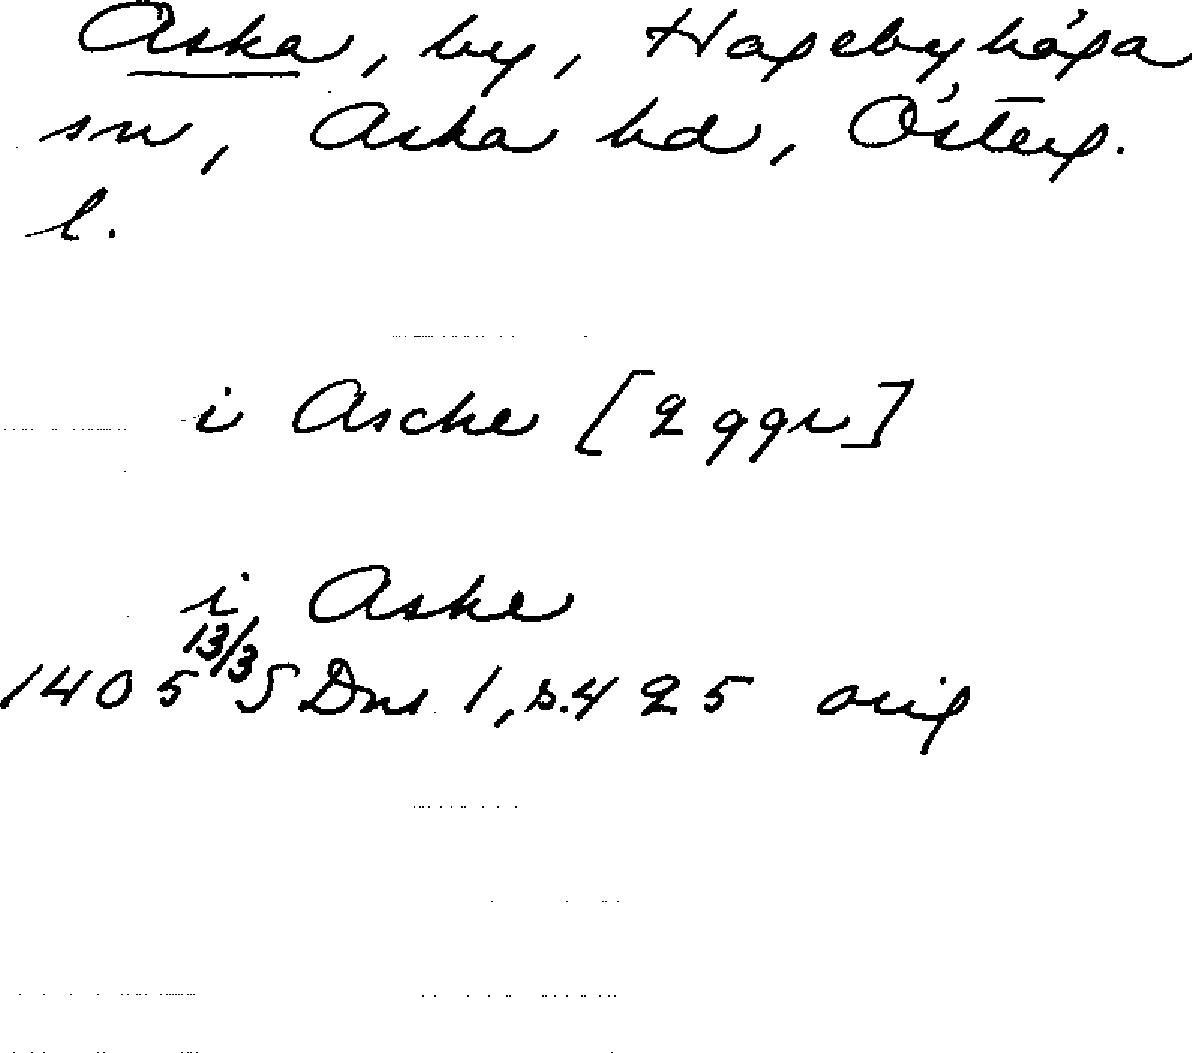 Aska, by, Hagebyhöga
sn, Aska hd, Österg.
l.
i Ascke [2 ggr]
i Aske
1405 13/3 SDns 1, s. 425 orig